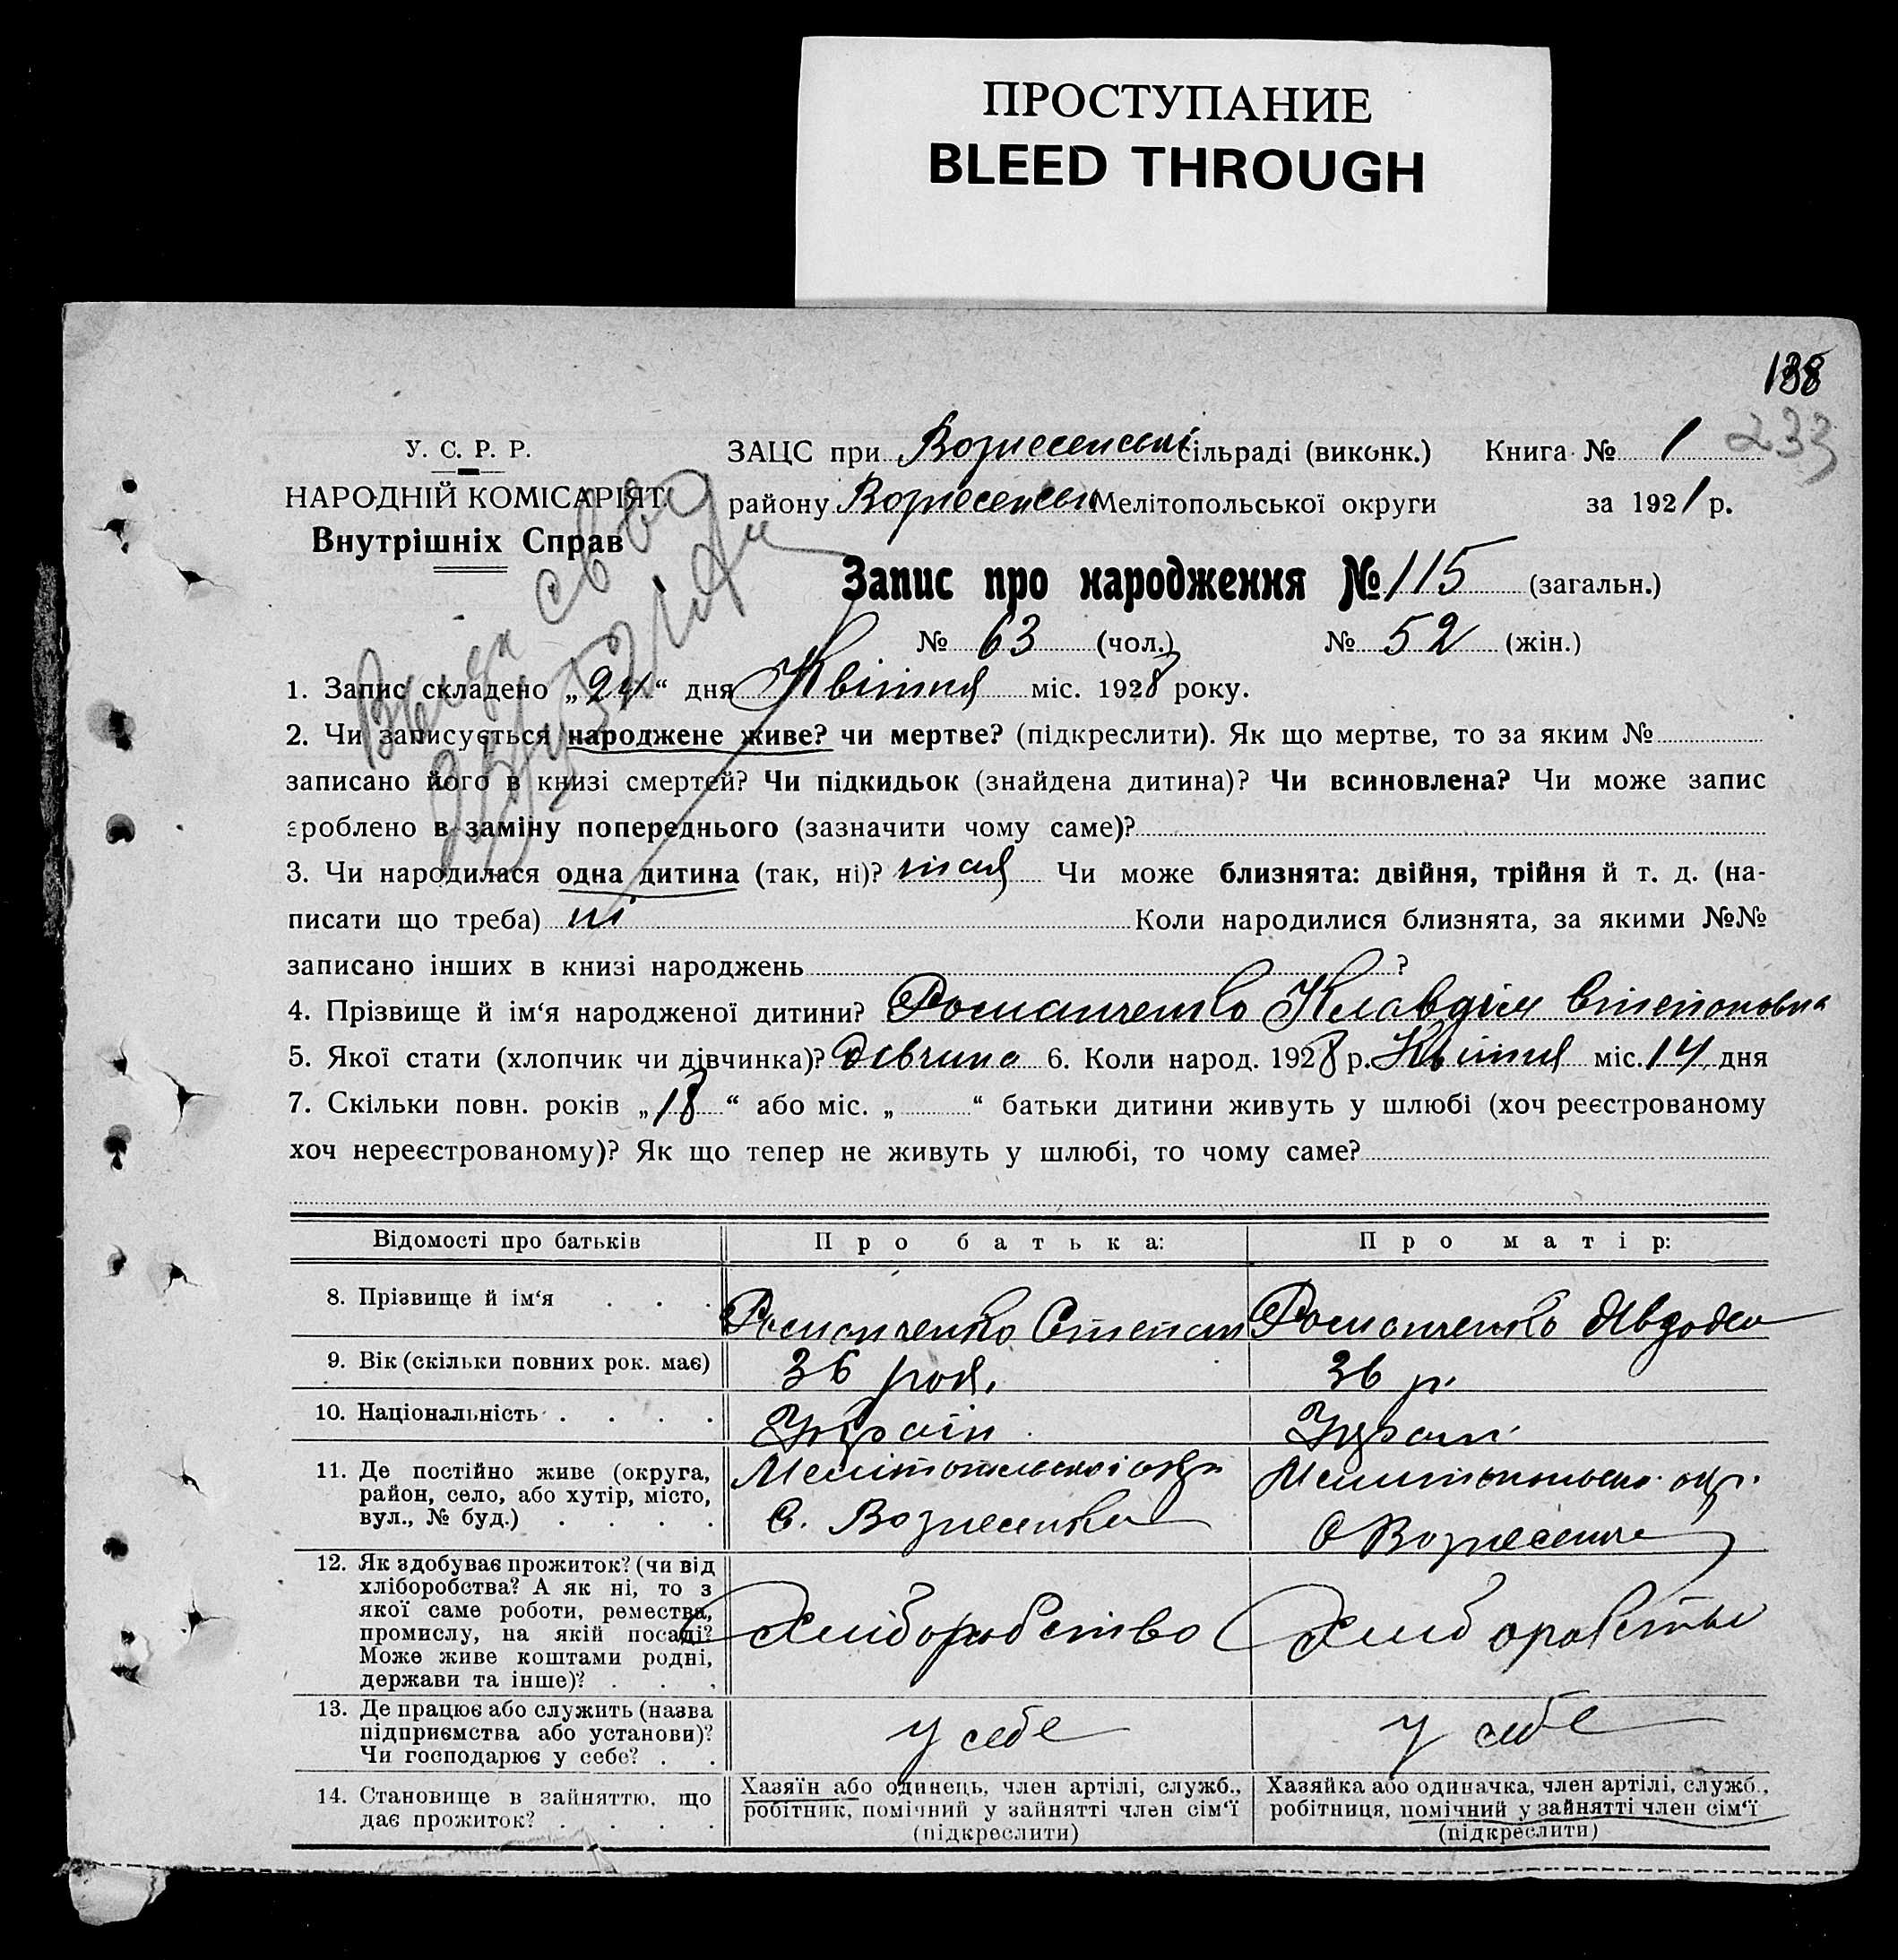 ПРОСТУПАНИЕ
BLEED THROUGH
138
233
У. С. Р. Р.
НАРОДНІЙ КОМІСАРІЯТ
Внутрішніх Справ
ЗАЦС при Вознесенській сільраді (виконк.) Книга № 1
району Вознесенськ Мелітопольської округи за 1921 р.
Запис про народження № 115 (загальн.)
№ 63 (чол.) № 52 (жін.)
1. Запис складено „24“ дня Квітня міс. 1928 року.
2. Чи записується народжене живе? чи мертве? (підкреслити). Як що мертве, то за яким №
записано його в книзі смертей? Чи підкидьок (знайдена дитина)? Чи всиновлена? Чи може запис
зроблено в заміну попереднього (зазначити чому саме)?
3. Чи народилася одна дитина (так, ні)? так Чи може близнята: двійня, трійня й т. д. (на-
писати що треба) ні Коли народилися близнята, за якими №№
записано інших в книзі народжень ?
4. Прізвище й ім‘я народженої дитини? Романченко Клавдія Степановна
5. Якої стати (хлопчик чи дівчинка)? Дівчина 6. Коли народ. 1928 р. Квітня міс. 14 дня
7. Скільки повн. років „18“ або міс. „ “ батьки дитини живуть у шлюбі (хоч реєстрованому
хоч нереєстрованому)? Як що тепер не живуть у шлюбі, то чому саме?
Відомості про батьків Про батька: Про матір:
8. Прізвище й ім‘я . . . Романченко Степан Романченко Явдоха
9. Вік (скільки повних рок. має) 36 рок. 36 р.
10. Національність . . . . Україн. Україн.
11. Де постійно живе (округа,
район, село, або хутір, місто,
вул., № буд.) . . . .
Мелітопольської окр.
С. Вознесенка
Мелітопольськ. окр.
С Вознесенка
12. Як здобуває прожиток? (чи від
хліборобства? А як ні, то з
якої саме роботи, ремества,
промислу, на якій посаді?
Може живе коштами родні,
держави та інше)? . . .
Хліборобство
Хліборобство
13. Де працює або служить (назва
підприємства або установи)?
Чи господарює у себе? . .
у себе
у себе
14. Становище в зайняттю, що
дає прожиток? . . . .
Хазяїн або одинець, член артілі, служб.,
робітник, помічний у зайнятті член сім‘ї
(підкреслити)
Хазяйка або одиначка, член артілі, служб.,
робітниця, помічний у зайнятті член сім‘ї
(підкреслити)